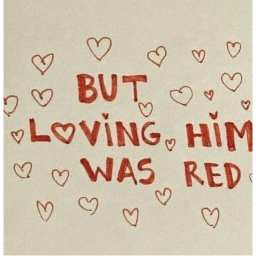 BUT
LOVING HIM
WAS RED